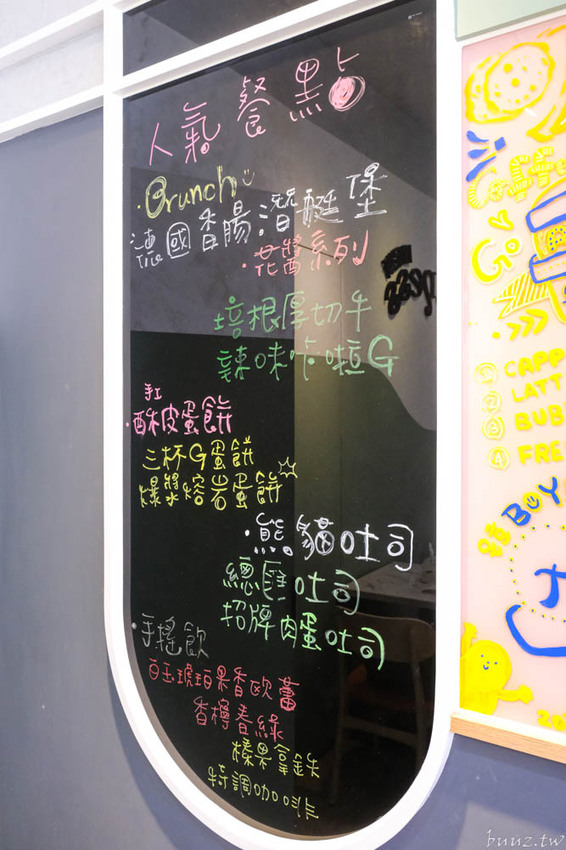 人氣餐點
·Brunch
德國香腸潛艇堡
·花醬系列
培根厚切牛
辣味卡啦G
手工
·酥皮蛋餅
三杯G蛋餅
爆漿熔岩蛋餅
·熊貓吐司
總匯吐司
招牌肉蛋吐司
·手搖飲
白玉琥珀果香歐蕾
香檸春綠
榛果拿鉄
特調咖啡
CAPP
LATT
BUB
FRE
BOY
buuz.tw